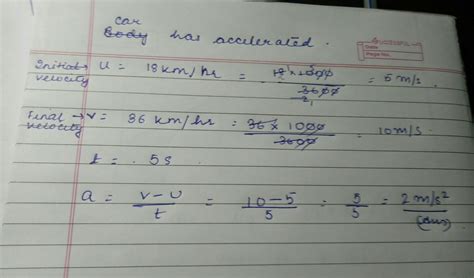 car
body has accelerated.
Date
Page No.
Initial velocity u = 18 km/hr = 18 × 1000 / 3600 = 5 m/s
Final → velocity v = 36 km/hr = 36 × 1000 / 3600 = 10 m/s
t = 5s
a = v-u / t = 10-5 / 5 = 5 / 5 = 2 m/s²
(Ans)